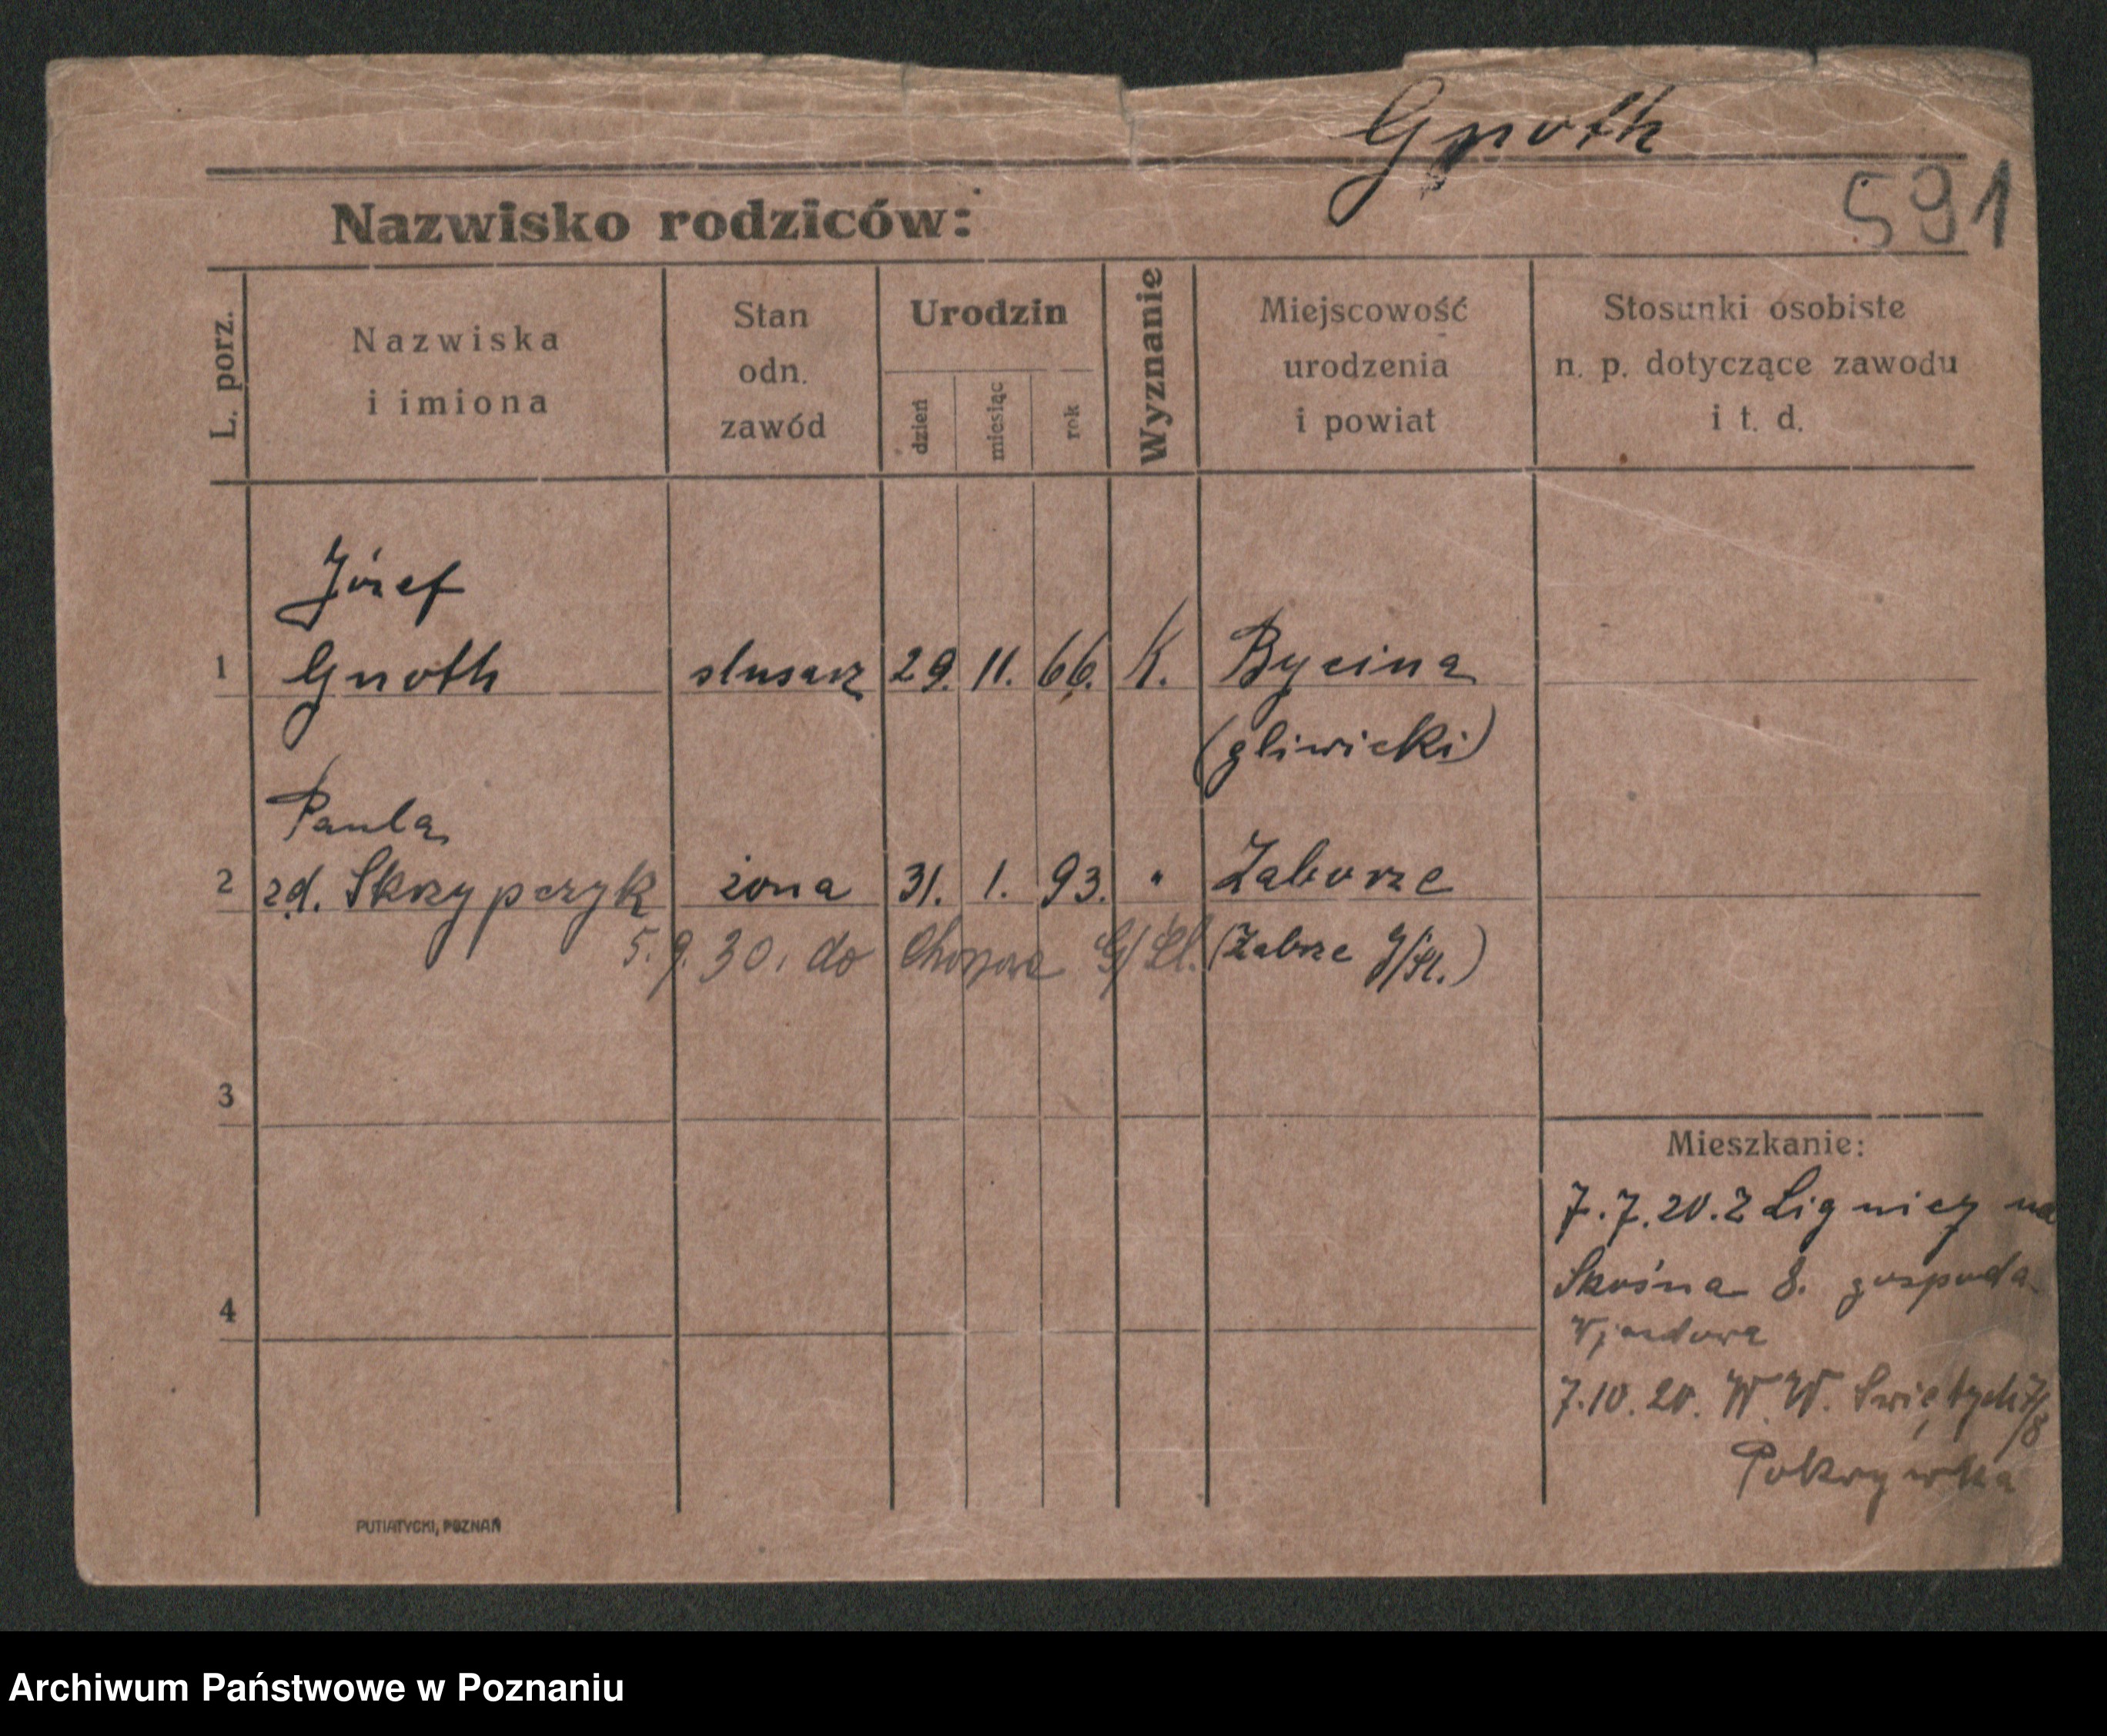 Gnoth
591
Nazwisko rodziców:
L. porz.
Nazwiska
i imiona
Stan
odn.
zawód
Urodzin
dzień
miesiąc
rok
Wyznanie
Miejscowość
urodzenia
i powiat
Stosunki osobiste
n. p. dotyczące zawodu
i t. d.
Józef
1 Gnoth slusarz 29. 11. 66. K. Bycina
(gliwicki)
Paula
2 zd. Skrzypczyk żona 31. 1. 93. " Zaborze
5.9.30. do G/Śl. (Zabrze g/śl.)
3
Mieszkanie:
7.7.20. z Lignicy na
Skośna 8. gospoda
4
7.10.20. W.W. Świętych 7/8
Pokrywka
PUTIATYCKI, POZNAŃ
Archiwum Państwowe w Poznaniu